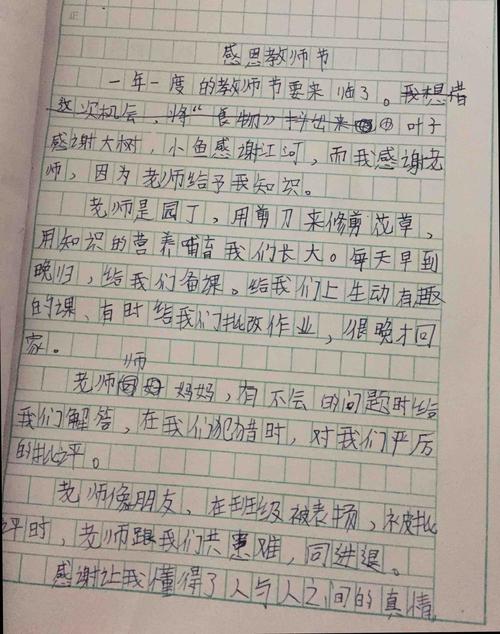 感恩教师节
一年一度的教师节要来临了。我想借
这次机会,将“食物”抖出来 叶子
感谢大树,小鱼感谢江河,而我感谢老
师,因为老师给予我知识。
老师是园丁,用剪刀来修剪花草,
用知识的营养哺育我们长大。每天早到
晚归,给我们备课。给我们上生动有趣
的课、有时给我们批改作业,很晚才回
家。
师
老师 妈妈,有不会的问题时给
我们解答,在我们犯错时,对我们严厉
的批评。
老师像朋友,在班级被表扬,被批
评时,老师跟我们共患难,同进退。
感谢让我懂得了人与人之间的真情,